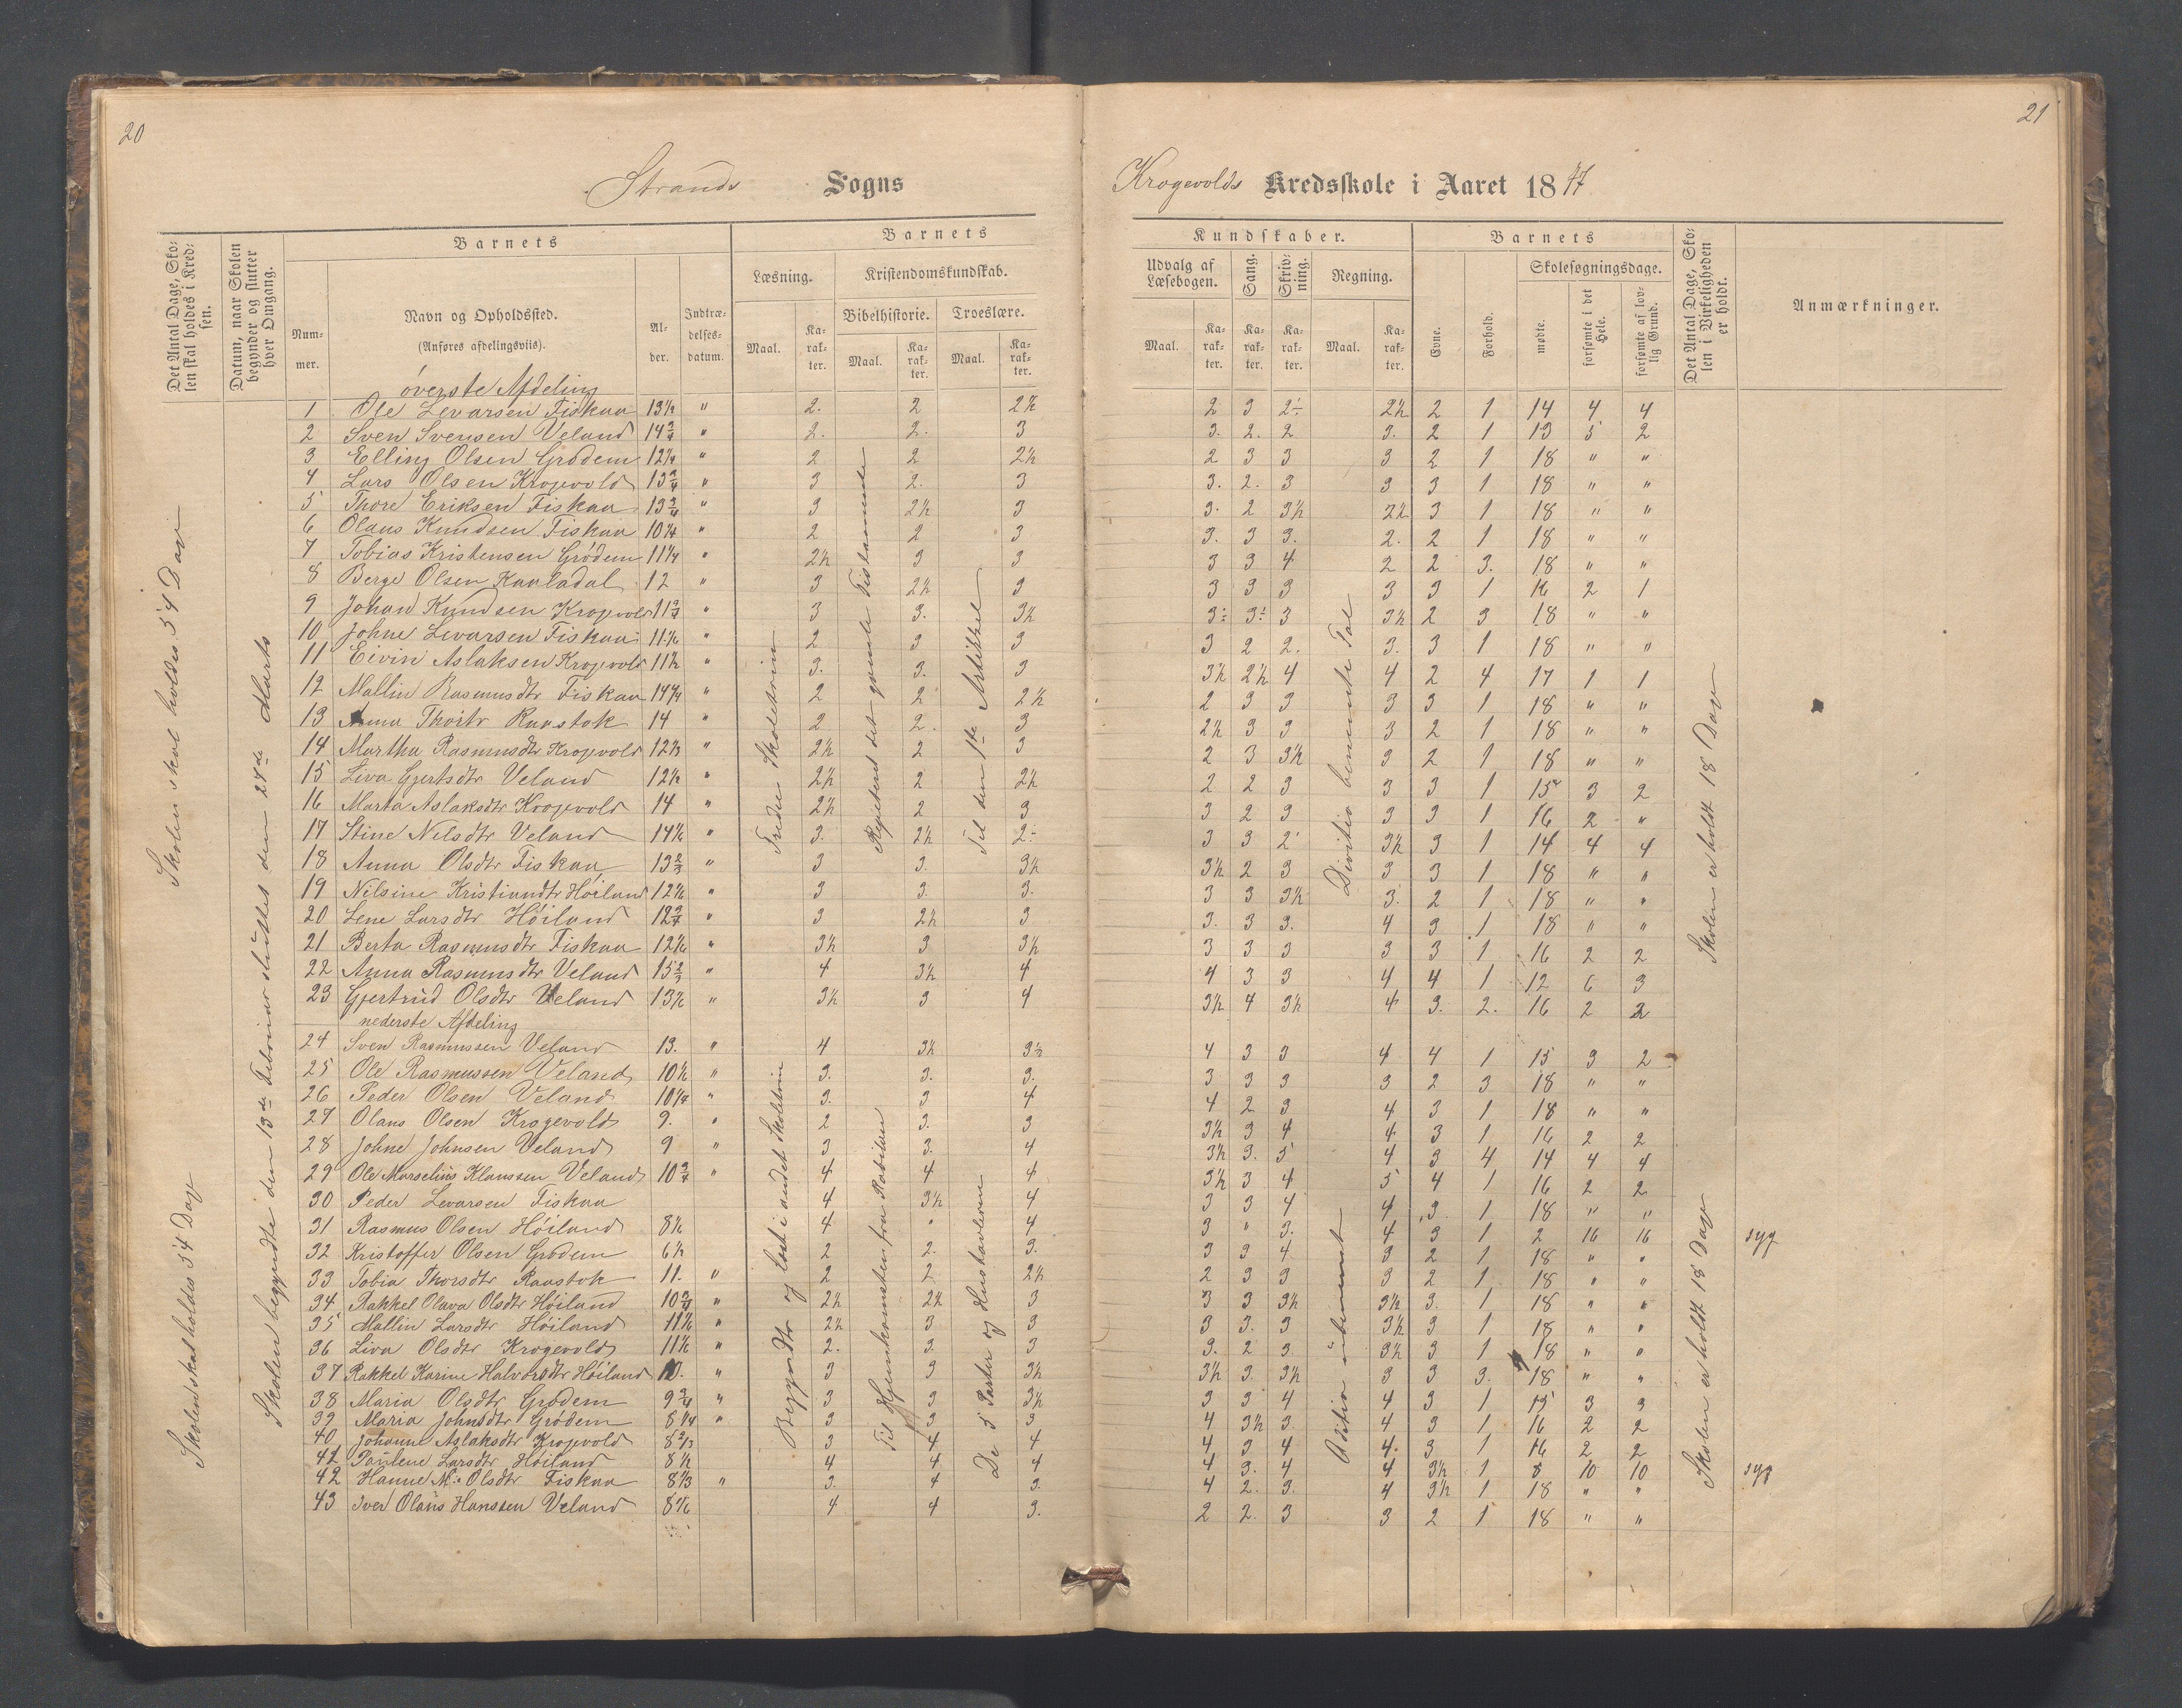 20
21
Strands Sogns
Krogevolds Kredsskole i Aaret 1877.
Det Antal Dage, Skolen skal holdes i Kredsen.
Datum, naar Skolen begynder og slutter hver Omgang.
Barnets
Nummer.
Navn og Opholdssted.
(Anføres afdelingsviis).
Alder.
Indtrædelsesdatum.
Barnets
Læsning.
Kristendomskundskab.
Bibelhistorie.
Troeslære.
Maal.
Karakter.
Maal.
Karakter.
Maal.
Karakter.
Kundskaber.
Udvalg af Læsebogen.
Sang.
Skrivning.
Regning.
Maal.
Karakter.
Karakter.
Karakter.
Maal.
Karakter.
Barnets
Evne.
Forhold.
Skolesøgningsdage.
mødte.
forsømte i det Hele.
forsømte af lovlig Grund.
Det Antal Dage, Skolen i Virkeligheden er holdt.
Anmærkninger.
Skolen skal holdes 54 Dage
Skolen begyndte den 13de Februar sluttes den 24de Marts
øverste Afdeling
1 Ole Levarsen Fiskaa 13½ " 2. 2 2½ 2 3 2÷ 2½ 2 1 14 4 4
2 Sven Svensen Veland 14¾ " 2. 2. 3 3. 2. 2 3. 2 1 13 5 2
3 Elling Olsen Grödem 12¼ " 2 2 2½ 2 3 3 3 2 1 18 " "
4 Lars Olsen Krogevold 13¾ " 3 2. 3 3. 2. 3 3 3 1 18 " "
5 Thore Eriksen Fiskaa 13¾ " 3 2½ 3 3. 2 3½ 2½ 3 1 18 " "
6 Olaus Knudsen Fiskaa 10¼ " 2 2 3 3. 3 3. 2. 2 1 18 " "
7 Tobias Kristensen Grödem 11¼ " 2½ 3 3 3 3 4 2 2 3. 18 " "
8 Berge Olsen Kaaladal 12 " 3 2½ 3 3 3 3 3 3 1 16 2 1
9 Johan Knudsen Krogevold 11¾ " 3 3. 3½ 3÷ 3÷ 3 3½ 2 3 18 " "
10 Johne Levarsen Fiskaa 11½ " 2 3 3 3 2 2. 3. 3 1 18 " "
11 Eivin Aslaksen Krogevold 11½ " 3. 3. 3 3½ 2½ 4 4 2 4 17 1 1
12 Mallin Rasmusdtr Fiskaa 14¼ " 2 2 2½ 2 3 3 3 3 1 18 " "
13 Anna Thorsdtr Raastok 14 " 2 2. 3 2½ 3 3 3 2 1 18 " "
14 Martha Rasmusdtr Krogevold 12½ " 2½ 2 3 2 3 3½ 3 2 1 18 " "
15 Liva Gjertsdtr Veland 12½ " 2½ 2 2½ 2 2 3 3 3 1 15 3 2
16 Marta Aslaksdtr Krogevold 14 " 2½ 2 3 3 2 3 3 3 1 16 2 "
17 Stine Nilsdtr Veland 14½ " 3. 2½ 2÷ 3 3 2 3½ 3 1 14 4 4
18 Anna Olsdtr Fiskaa 13⅔ " 3 3. 3½ 3½ 2 3 3 3 1 18 " "
19 Nilsine Kristiandtr Höiland 12½ " 3 3. 3. 3 3 3½ 3. 2 1 18 " "
20 Lene Larsdtr Höiland 12¾ " 3 2½ 3 3. 3 3. 4 3 1 18 " "
21 Berta Rasmusdtr Fiskaa 12½ " 3½ 3 3½ 3 3 3 3 3 1 16 2 2
22 Anna Rasmusdtr Veland 15⅔ " 4 3½ 4 4 3 3 4 4 1 12 6 3
23 Gjertrud Olsdtr Veland 13½ " 3½ 3 4 3½ 4 3½ 4 3. 2. 16 2 2
Tredie Skoletrin
Repeteret det gamle Testamente
Til den 1ste Artikkel
Divitio benævnte Tal
Skolen er holdt 18 Dage
Skolen skal holdes 54 Dage
nederste Afdeling
24 Sven Rasmussen Veland 13. " 4 3½ 3½ 4 3 3 4 4 1 15 3 2
25 Ole Rasmussen Veland 10½ " 3. 3. 3. 3 3 3 3 2 3 18 " "
26 Peder Olsen Veland 10¼ " 3. 3 4 4 2 3 4 3 1 18 " "
27 Olaus Olsen Krogevold 9. " 2 3. 3 3½ 3 4 4 3 1 16 2 2
28 Johne Johnsen Veland 9 " 3 3. 4 3½ 3. 5 4 3 4 14 4 4
29 Ole Marselius Klaussen Veland 10¾ " 4 4 4 3½ 3 4 5 4 1 16 2 2
30 Peder Levarsen Fiskaa 4 3½ 4 3 3 4 4 3 1 18 " "
31 Rasmus Olsen Höiland 8½ 4 " 4 3 " 3. 4 3 1 2 16 16 syg
32 Kristoffer Olsen Grödem 6½ 2 2. 3. 3 3 4 3 2 1 18 " "
33 Tobia Thorsdtr Raastok 11. " 2 2 2½ 2 3 3 3 2 1 18 " "
34 Rakkel Olava Olsdtr Höiland 10¾ " 2½ 2½ 3 3 3 3½ 3½ 3. 1 18 " "
35 Mallin Larsdtr Höiland 11½ " 2½ 3 3 3 3. 3 3½ 3 1 18 " "
36 Liva Olsdtr Krogevold 11½ " 2. 3. 3 3. 2 3 3½ 3 1 18 " "
37 Rakkel Karine Halvorsdtr Höiland 10. " 3 3 3½ 3½ 3. 3½ 3 3 3. 18 " "
38 Maria Olsdtr Grödem 9¾ " 3 3 3½ 3 3 4 4 3 1 15 3 3
39 Maria Johnsdtr Grödem 8¼ " 3 3 3 4 3½ 3. 4 3 1 16 2 2
40 Johanne Aslaksdtr Krogevold 8⅔ 3 4 4 4 3 4 4. 3 1 16 2 2
41 Paulene Larsdtr Höiland 8½ 4 4 4 4 3. 4 4 3½ 1 8 10 10 syg
42 Hanne M. Olsdtr Fiskaa 8⅓ " 3. 4 3. 4 2. 3. 4 3½ 1 18 " "
43 Iver Olaus Hanssen Veland 8½ 4 4 3. 2 2. 3 3 2 1 18 " "
Begyndtr og læst i andet Skoletrin
Til Hjemkomsten fra Babilon
De 5 Parter og Hustavlerne
Adition ubenævnt
Skolen er holdt 18 Dage